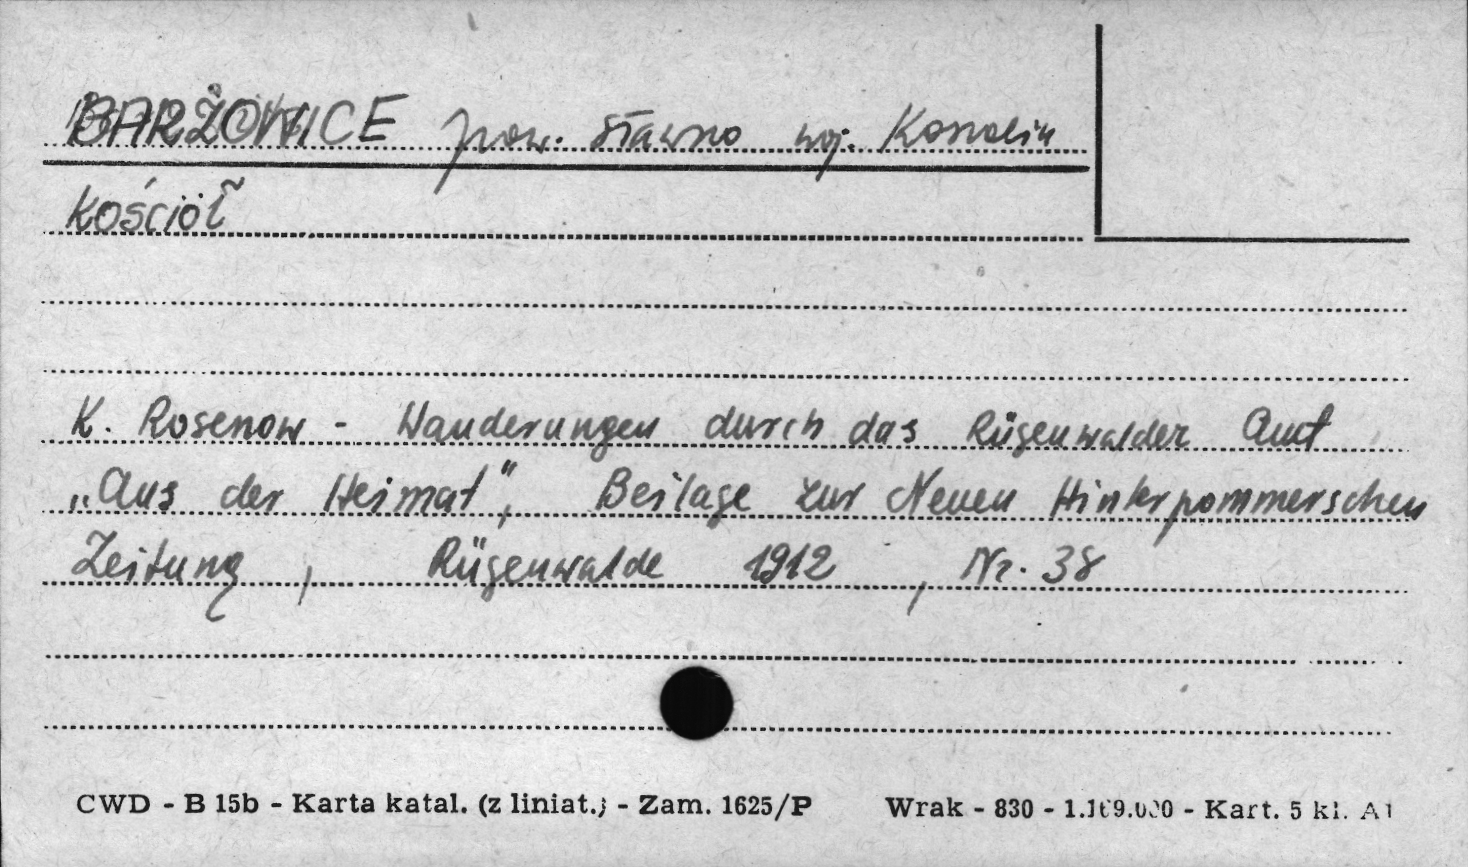 BARZOWICE pow. Sławno woj. Koszalin
Kościół
K. Rosenow - Wanderungen durch das Rügenwalder Amt
„Aus der Heimat", Beilage zur Neuen Hinterpommerschen
Zeitung, Rügenwalde 1912, Nr. 38
CWD - B 15b - Karta katal. (z liniat.) - Zam. 1625/P Wrak - 830 - 1.169.000 - Kart. 5 kl. A1